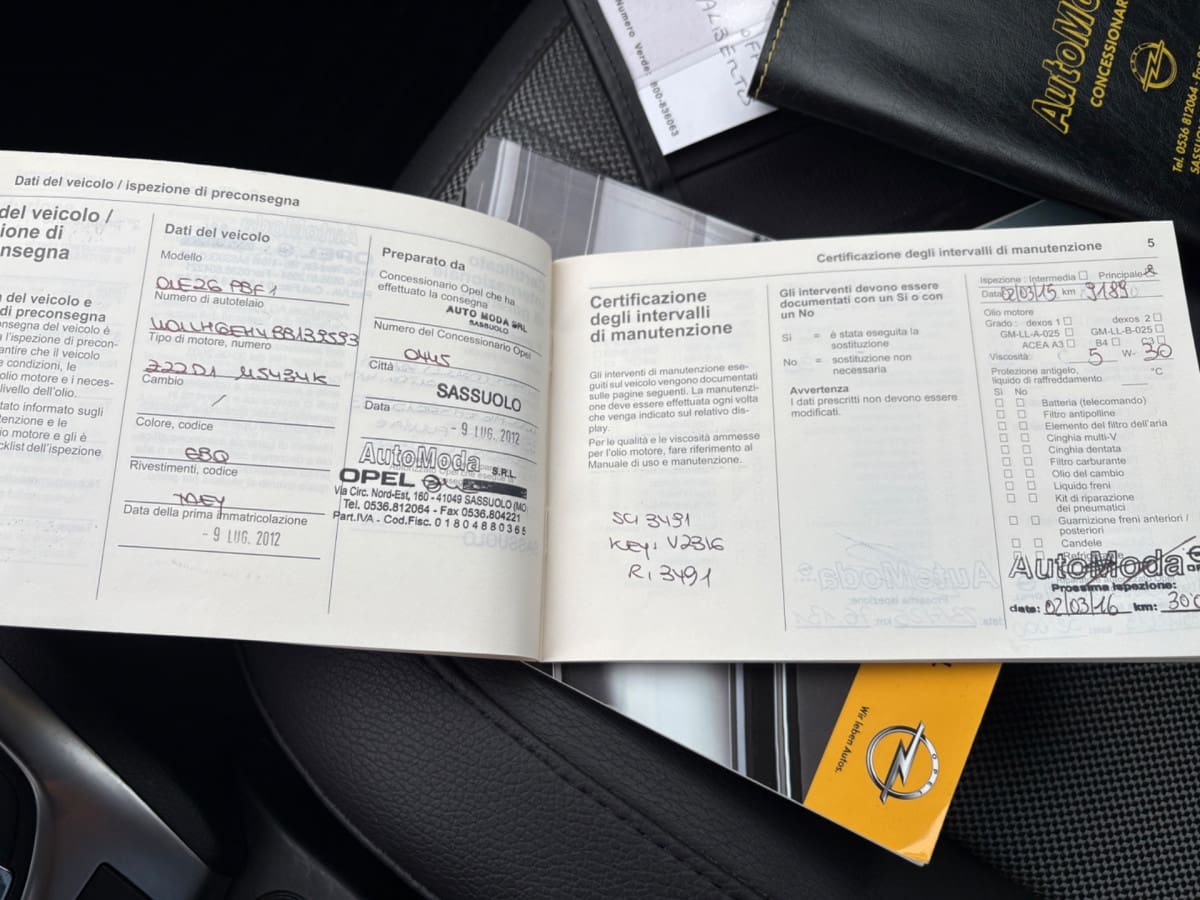 Numero Verde: 800-836063
ALBERTO
AutoMo
CONCESSIONAR
Tel. 0536 812064
SASSU
Dati del veicolo / ispezione di preconsegna
del veicolo /
ione di
nsegna
del veicolo e
di preconsegna
nsegna del veicolo è
l'ispezione di precon-
antire che il veicolo
e condizioni, le
olio motore e i neces-
livello dell'olio.
tato informato sugli
tenzione e le
io motore e gli è
cklist dell'ispezione
Dati del veicolo
Modello
0LE26 PBF1
Numero di autotelaio
Tipo di motore, numero
Cambio
/
Colore, codice
GBQ
Rivestimenti, codice
Data della prima immatricolazione
- 9 LUG. 2012
Preparato da
Concessionario Opel che ha
effettuato la consegna
AUTO MODA SRL
SASSUOLO
Numero del Concessionario Opel
0445
Città
SASSUOLO
Data
- 9 LUG. 2012
AutoModa S.R.L.
OPEL
Via Circ. Nord-Est, 160 - 41049 SASSUOLO (MO
Tel. 0536.812064 - Fax 0536.804221
Part.IVA - Cod.Fisc. 0 1 8 0 4 8 8 0 3 6 5
Certificazione degli intervalli di manutenzione 5
Certificazione
degli intervalli
di manutenzione
Gli interventi di manutenzione ese-
guiti sul veicolo vengono documentati
sulle pagine seguenti. La manutenzi-
one deve essere effettuata ogni volta
che venga indicato sul relativo dis-
play.
Per le qualità e le viscosità ammesse
per l'olio motore, fare riferimento al
Manuale di uso e manutenzione.
SC: 3491
KEY: V2316
R: 3491
Gli interventi devono essere
documentati con un Sì o con
un No
Sì = è stata eseguita la
sostituzione
No = sostituzione non
necessaria
Avvertenza
I dati prescritti non devono essere
modificati.
Ispezione : Intermedia Principale
Data 02/03/15 km 9189
Olio motore
Grado : dexos 1 dexos 2
GM-LL-A-025 GM-LL-B-025
ACEA A3 B4 C3
Viscosità: 5 W- 30
Protezione antigelo,
liquido di raffreddamento °C
Sì No
Batteria (telecomando)
Filtro antipolline
Elemento del filtro dell'aria
Cinghia multi-V
Cinghia dentata
Filtro carburante
Olio del cambio
Liquido freni
Kit di riparazione
dei pneumatici
Guarnizione freni anteriori /
posteriori
Candele
AutoModa
Prossima ispezione:
data: 02/03/16 km: 300
Wir leben Autos.
OPEL